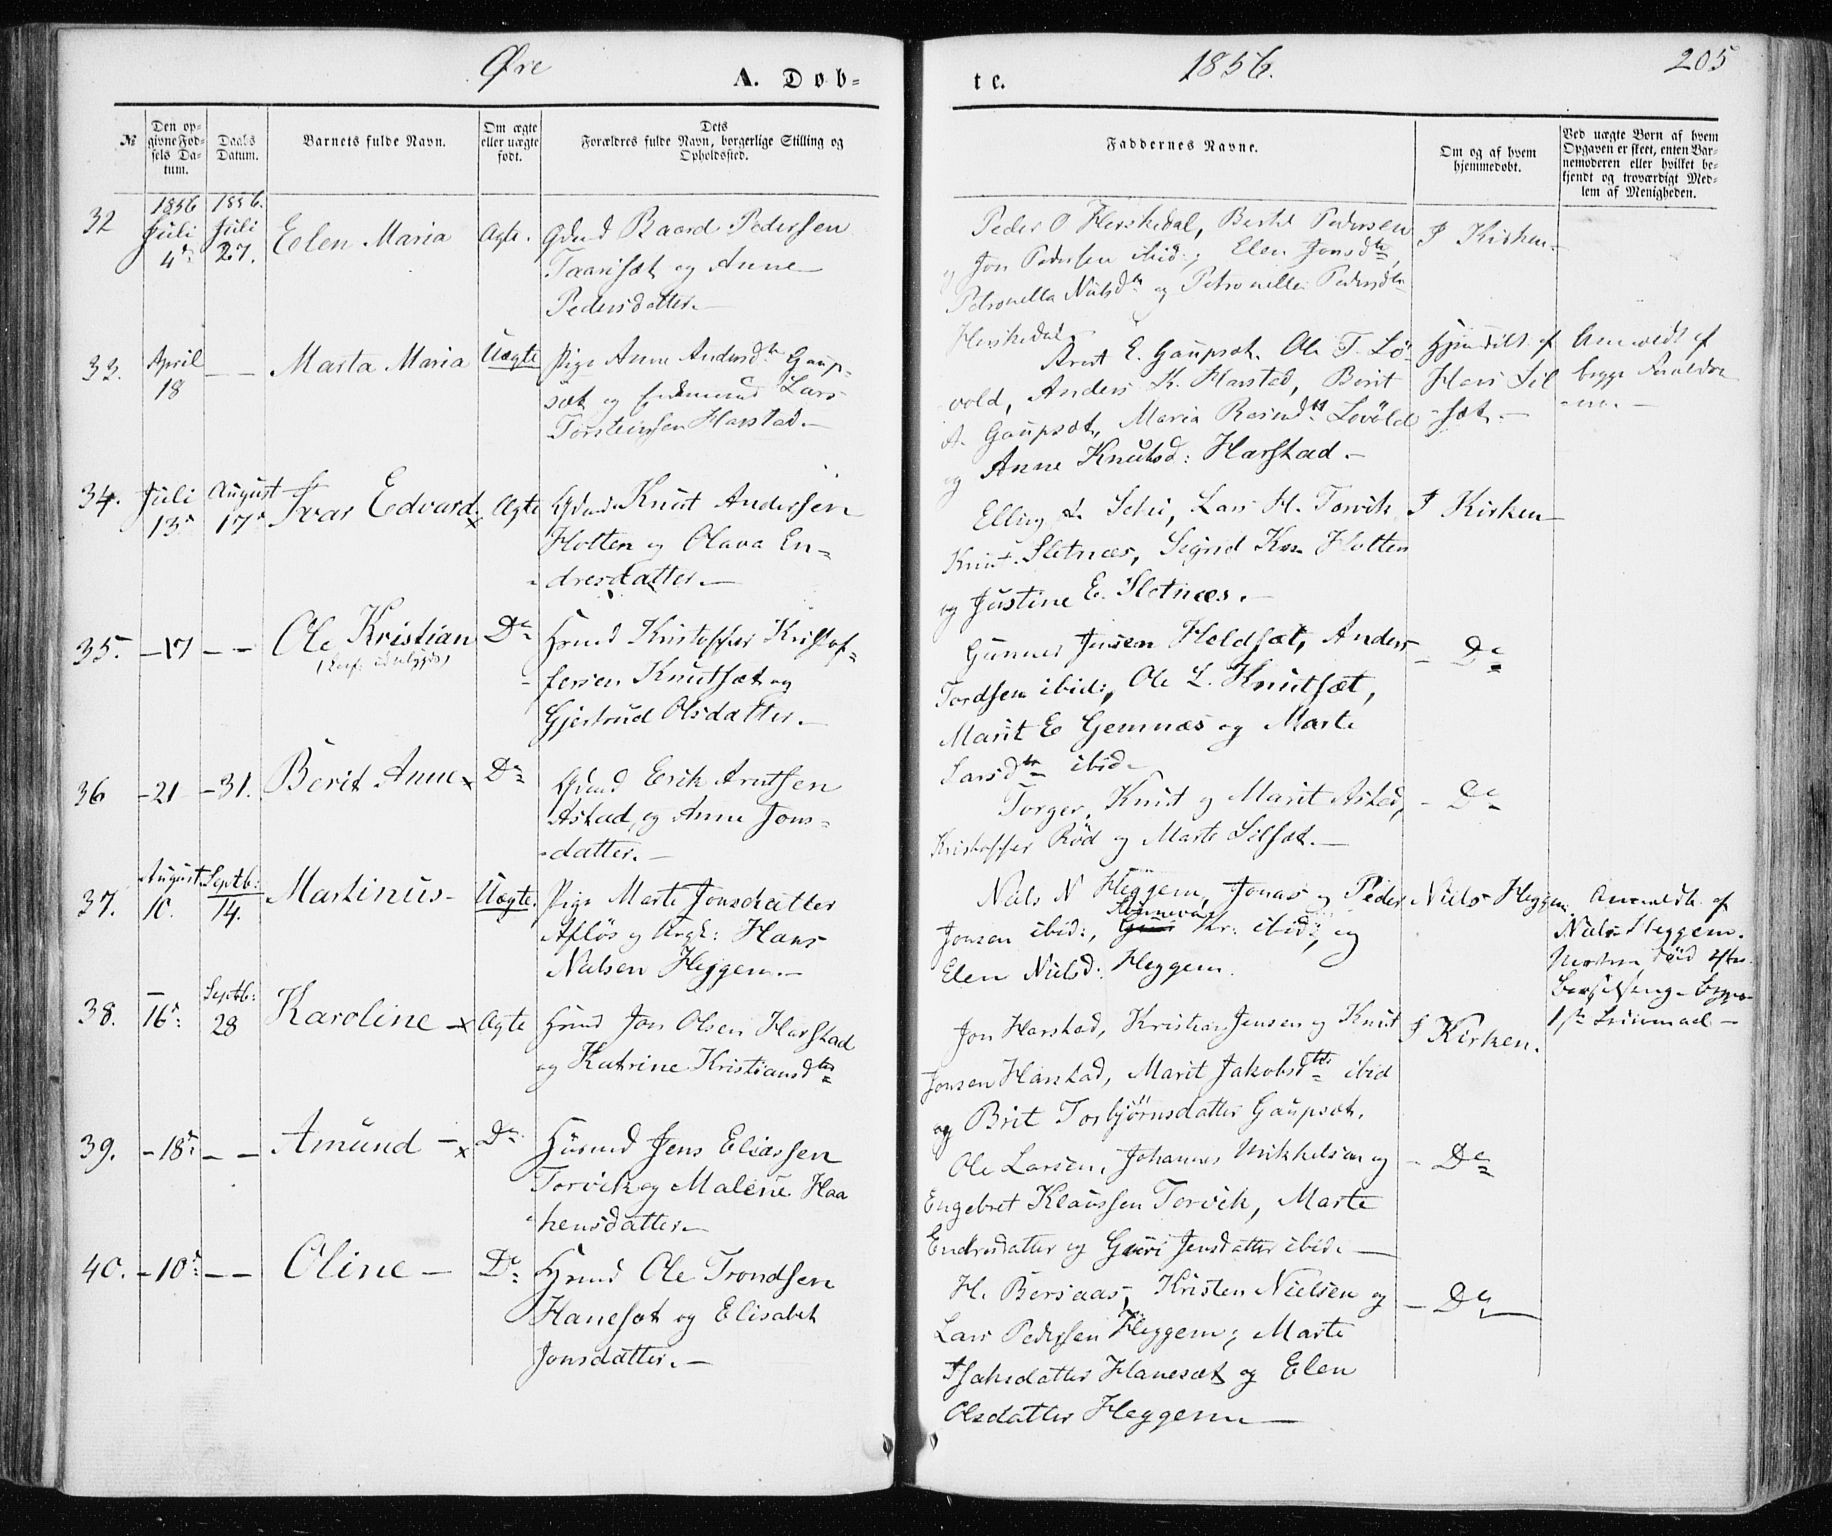 Øre
A. Døb-
te.
1856.
205
№
Den op-
givne Fød-
sels Da-
tum.
Daabs
Datum.
Barnets fulde Navn.
Om ægte
eller uægte
født.
Dets
Forældres fulde Navn, borgerlige Stilling og
Opholdssted.
Faddernes Navne.
Om og af hvem
hjemmedøbt.
Ved uægte Børn af hvem
Opgaven er skeet, enten Bar-
nemoderen eller hvilket be-
kjendt og troværdigt Med-
lem af Menigheden.
32
1856
Juli
4
1856.
Juli
27.
Elen Maria
Ægte.
Gbmd Baard Pedersen
Taarsæt og Anne
Pedersdatter.
Peder O Heiskedal, Bertel Pedersen
og Jon Pedersen ibid:, Elen Jonsdtr,
Petronella Nielsdtr og Petronelle Pedersdtr
Heiskedal.
I Kirken
33.
April
18
— —
Marta Maria
Uægte
Pige Anne Andersdtr Gaup-
sæt og Lars
Torsteinsen Harstad.
Arnt E. Gaupsæt. Ole T. Lö-
vold, Anders K. Harstad, Berit
A. Gaupsæt, Maria Rasmdtr Lovöld
og Anne Knutsd: Harstad.
af
Hans Sil
sæt.
Anmeldt af
begge Forældre
ne.
34.
Juli
13
August
17
Ivar Edvard x
Ægte
Gbmd Knut Andersen
Hotten og Olava En-
dresdatter.
Elling L. Schei, Lars H. Torvik
Knut Sletnæs, Signd Kn Hotten
og Justine E. Sletnæs.
I Kirken
35.
— 17
— —
Ole Kristian
Do
Hmd Kristoffer Kristof-
fersen Knutsæt og
Gjertrud Olsdatter.
Gunner Jensen Heldsæt, Anders
Tordsen ibid:, Ole L. Knutsæt,
Marit E Gemnæs og Marte
Larsdtr ibid.
— Do
36
— 21
— 31.
Berit Anne x
Do
Gbmd Erik Arntsen
Astad, og Anne Jons-
datter.
Torger, Knut og Marit Astad,
Kristoffer Röd og Marte Silsæt.
— Do
37.
August
10.
Septb:
14.
Martinus
Uægte.
Pige Marte Jonsdatter
Aflös og Ungk: Hans
Nielsen Heggem.
Niels N Heggem, Jonas og Peder
Jonsen ibid:, Guri Kr: ibid:, og
Elen Nielsd: Heggem.
Niels Heggem.
Anmeldt af
Niels Heggem.
Moderen död efter
Barselseng. Begges
1ste Leiermaal
38.
—
16
Septb:
28
Karoline x
Ægte
Hmd Jon Olsen Harstad
og Katrine Kristiansdtr
Jon Harstad, Kristian Jensen og Knut
Jonsen Harstad, Marit Jakobsdtr ibid
og Brit Torbjörnsdatter Gaupsæt.
I Kirken.
39.
— 18
— —
Amund x
Do
Husmd Jens Eliassen
Torvik og Malene Haa
kensdatter
Ole Larsen, Johannes Mikkelsen og
Engebret Klaussen Torvik, Marte
Endresdatter og Guri Jensdatter ibid.
— Do
40.
— 10
— —
Oline
Do
Hmd Ole Trondsen
Hanesæt og Elisabet
Jonsdatter.
H. Bersaas, Kristen Nielsen og
Lars Pedersen Heggem, Marte
Isaksdatter Hanesæt og Elen
Olsdatter Heggem
— Do